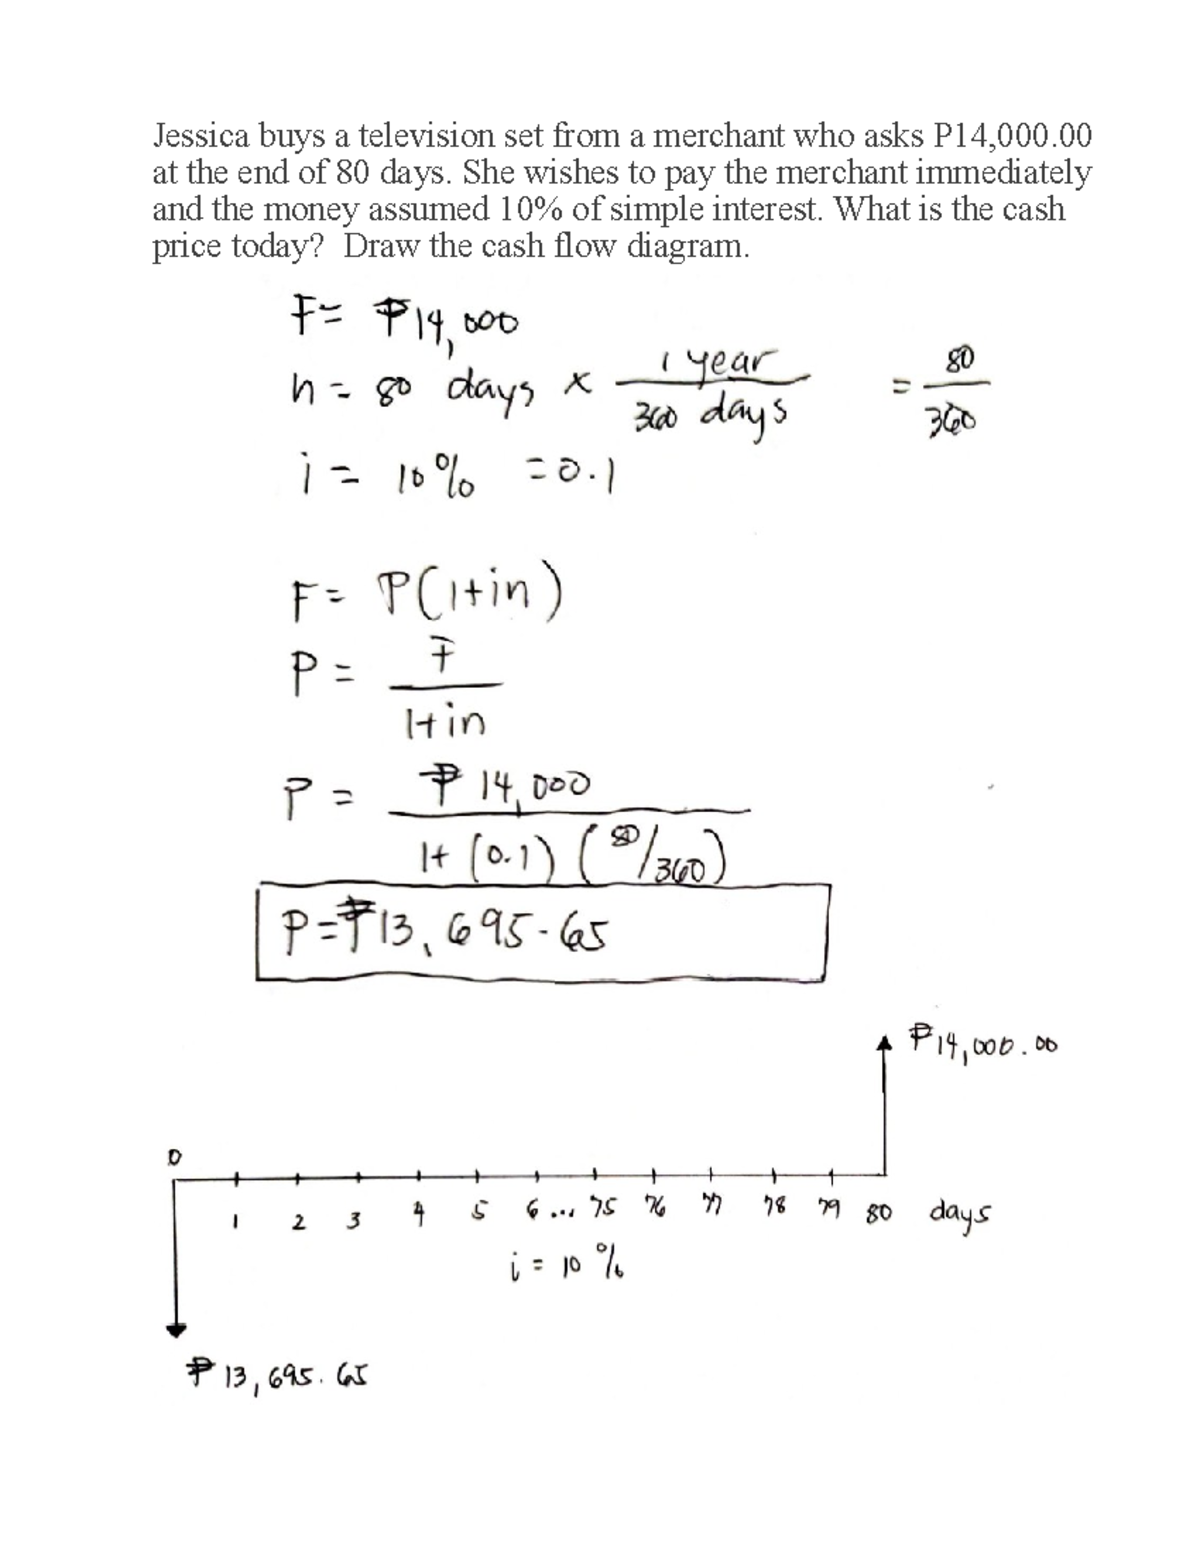 Jessica buys a television set from a merchant who asks P14,000.00
at the end of 80 days. She wishes to pay the merchant immediately
and the money assumed 10% of simple interest. What is the cash
price today? Draw the cash flow diagram.
F= ₱14,000
n = 80 days x 1 year / 360 days = 80 / 360
i = 10% = 0.1
F = P(1+in)
P = F / 1+in
P = ₱ 14,000 / 1+ (0.1) (80/360)
P=₱13,695.65
₱14,000.00
0
1 2 3 4 5 6 ... 75 76 77 78 79 80 days
i = 10 %
₱ 13,695.65